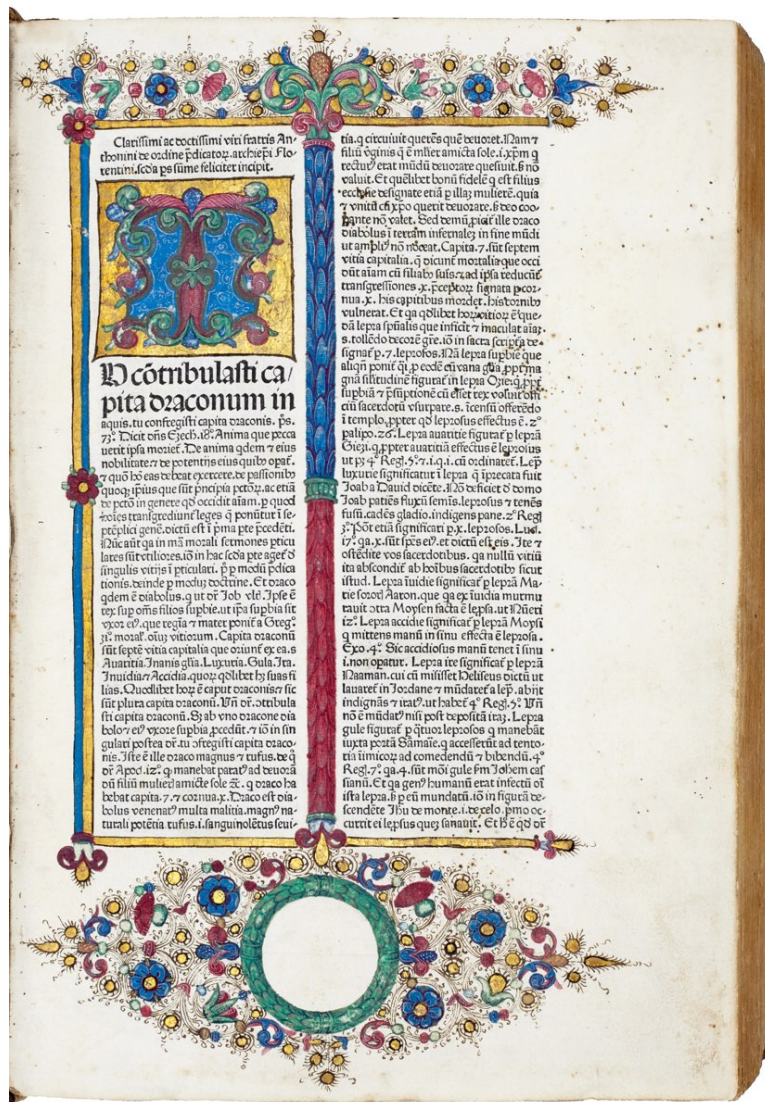 Clarissimi ac doctissimi viri fratris An-
thonini de ordine p̃dicatoꝝ. archiep̃i Flo-
rentini. scďa ps sũme feliciter incipit.
T
V cõtribulasti ca/
pita draconum in
aquis. tu confregisti capita draconis. p̃s.
73.° Dicit dñs Ezech. 18.° Anima que pecca
uerit ipsa moriet̃. De anima qdem ⁊ eius
nobilitate ⁊ de potentijs eius quibꝰ opat̃.
⁊ quõ hõ eas debeat exercere. de passionibꝰ
quoqꝫ ipsius que sũt p̃ncipia pctõꝝ. ac etiã
de pctõ in genere qď occidit aĩam. p quod
hoĩes transgrediunt̃ leges q̃ ponũtur ĩ se-
ptẽplici gene. dictũ est ĩ pma pte pcedẽti.
Nũc aũt qa in mã morali sermones pticu
lares sũt vtiliores. iõ in hac scďa pte aget̃ ď
singulis vitijs ĩ pticulari. p̃ p modũ pdica
tionis. deinde p modũ doctrine. Et draco
qdem ẽ diabolus. q ut dr̃ Job .xli. Ipse ẽ
rex sup om̃s filios supbie. ut ip̃a supbia sit
vxor eiꝰ. que regia ⁊ mater ponit̃ a Greg.°
31.° moral̃. oĩuꝫ vitiorum. Capita draconũ
sũt septẽ vitia capitalia que oriunt̃ ex ea. s
Auaritia. Inanis gl̃ia. Luxuria. Gula. Ira.
Inuidia ⁊ Accidia. quoꝝ qďlibet hꝫ suas fi
lias. Quodlibet hoꝝ ẽ caput draconis ⁊ sic
sũt plura capita draconũ. Vñ dr̃. cõtribula
sti capita draconũ. Sꝫ ab vno dracone dia
bolo ⁊ eiꝰ vxore supbia pcedũt. ⁊ iõ in sin
gulari postea dr̃. tu cõfregisti capita draco-
nis. Iste ẽ ille draco magnus ⁊ rufus. de q
dr̃ Apoč. 12.° q manebat paratꝰ ad deuorã
dũ filiũ mulieř amicte sole ⁊č. q draco ha
bebat capita .7. ⁊ cornua .x. Draco est dia-
bolus venenatꝰ multa malitia. magnꝰ na-
turali potẽtia. rufus .i. sanguinolẽtus seui-
tia. q circuiuit querẽs quẽ deuoret. Nam ⁊
filiũ v̇ginis q̃ ẽ mlier amicta sole .i. xp̃m q
recturꝰ erat mũdũ deuorare quesiuit. sꝫ nõ
valuit. Et quẽlibet bonũ fidelẽ q est filius
eccl̃esie designate etiã p illaꝫ mulierẽ. quia
⁊ vnitũ cũ xp̃o querit deuorare. sꝫ deo coo-
pante nõ valet. Sed demũ pijciet̃ ille draco
diabolus ĩ terram infernalẽ in fine mũdi
ut ampliꝰ nõ noceat. Capita .7. sũt septem
vitia capitalia. q̃ dicunt̃ mortalia que occi
dũt aĩam cũ filiabꝰ suis. ⁊ ad ipsa reducũt̃
transgressiones .x. p̃ceptoꝝ signata p cor-
nua .x. his capitibus mordet. his cornibꝰ
vulnerat. Et qa qďlibet hoꝝ vitioꝝ ẽ que-
dã lepra spũalis que inficit ⁊ maculat aĩas
.s. tollẽdo decorẽ gr̃e. iõ in sacra scriptura de-
signat̃ p .7. leprosos. Nã lepra supbie que
aliqñ ponit̃ qi pro eodẽ cũ vana gl̃ia ppt̃ ma
gnã silitudinẽ figurat̃ in lepra Ozie. q ppt̃
supbiã ⁊ p̃sũptionẽ cũ esset rex voluit offi
ciũ sacerdotũ vsurpare .s. ĩcensũ offerẽdo
ĩ templo. ppter qď leprosus effectus ẽ. 2.°
palipo. 26. Lepra auaritie figurat̃ p leprã
Giezi. q ppter auaritiã effectus ẽ leprosus
ut pꝫ 4.° Regꝫ. 5.° ⁊ .i. q. i. cũ ordinaret̃. Lep̃
luxurie significatur ĩ lepra q̃ ĩprecata fuit
Joab a Dauid dicẽte. Nõ deficiet ď domo
Joab patiẽs fluxũ semĩs. leprosus ⁊ tenẽs
fusũ. cadẽs gladio. indigens pane. 2.° Regꝫ
3.° Põt etiã significari p .x. leprosos. Luč.
17.° qa .x. sũt spẽs eiꝰ. et dictũ est eis. Ite ⁊
ostẽdite vos sacerdotibus. qa nullũ vitiũ
ita abscondit̃ ab hoĩbus sacerdotibꝰ sicut
istud. Lepra ĩuidie significat̃ p leprã Ma-
rie soroř Aaron. que qa ex ĩuidia murmu
rauit cõtra Moysen facta ẽ lep̃sa. ut Nũeri
12.° Lepra accidie significat̃ p leprã Moysi
q mittens manũ in sinu effecta ẽ leprosa.
Exo. 4.° Sic accidiosus manũ tenet ĩ sinu
.i. non opatur. Lepra ire significat̃ p leprã
Naaman. cui cũ misisset Heliseus dictũ ut
lauaret̃ in Jordane ⁊ mũdaret̃ a lep̃. abijt
indignãs ⁊ iratꝰ. ut habet̃ 4.° Regꝫ. 5.° Vñ
nõ ẽ mũdatꝰ nisi post depositã irãꝫ. Lepra
gule figurat̃ p q̃tuor leprosos q manebãt
iuxta portã Samarie. q accesserũt ad tento-
ria ĩimicoꝝ ad comedendũ ⁊ bibendũ. 4.°
Regꝫ. 7.° qa .4. sũt modi gule fm̃ Joh̃em cas
sianũ. Et qa genꝰ humanũ erat infectũ oĩ
ista lepra. sꝫ p eũ mundatũ. iõ in figurã de-
scendẽte Jhũ de monte .i. de celo. pmo oc-
currit ei lep̃sus queꝫ sanauit. Et h̃ ẽ qď dr̃